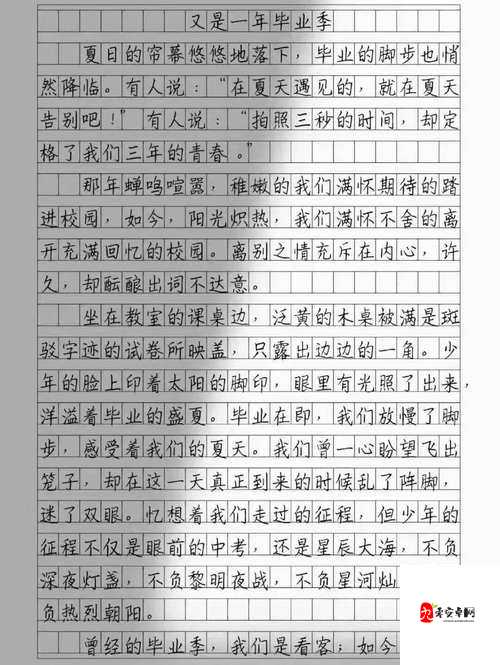 又是一年毕业季
夏日的帘幕悠悠地落下，毕业的脚步也悄
然降临。有人说：“在夏天遇见的，就在夏天
告别吧！”有人说：“拍照三秒的时间，却定
格了我们三年的青春。”
那年蝉鸣喧嚣，稚嫩的我们满怀期待的踏
进校园，如今，阳光炽热，我们满怀不舍的离
开充满回忆的校园。离别之情充斥在内心，许
久，却酝酿出词不达意。
坐在教室的课桌边，泛黄的木桌被满是斑
驳字迹的试卷所映盖，只露出边边的一角。少
年的脸上印着太阳的脚印，眼里有光照了出来，
洋溢着毕业的盛夏。毕业在即，我们放慢了脚
步，感受着我们的夏天。我们曾一心盼望飞出
笼子，却在这一天真正到来的时候乱了阵脚，
迷了双眼。忆想着我们走过的征程，但少年的
征程不仅是眼前的中考，还是星辰大海，不负
深夜灯盏，不负黎明夜战，不负星河灿
负热烈朝阳。
曾经的毕业季，我们是看客；如今